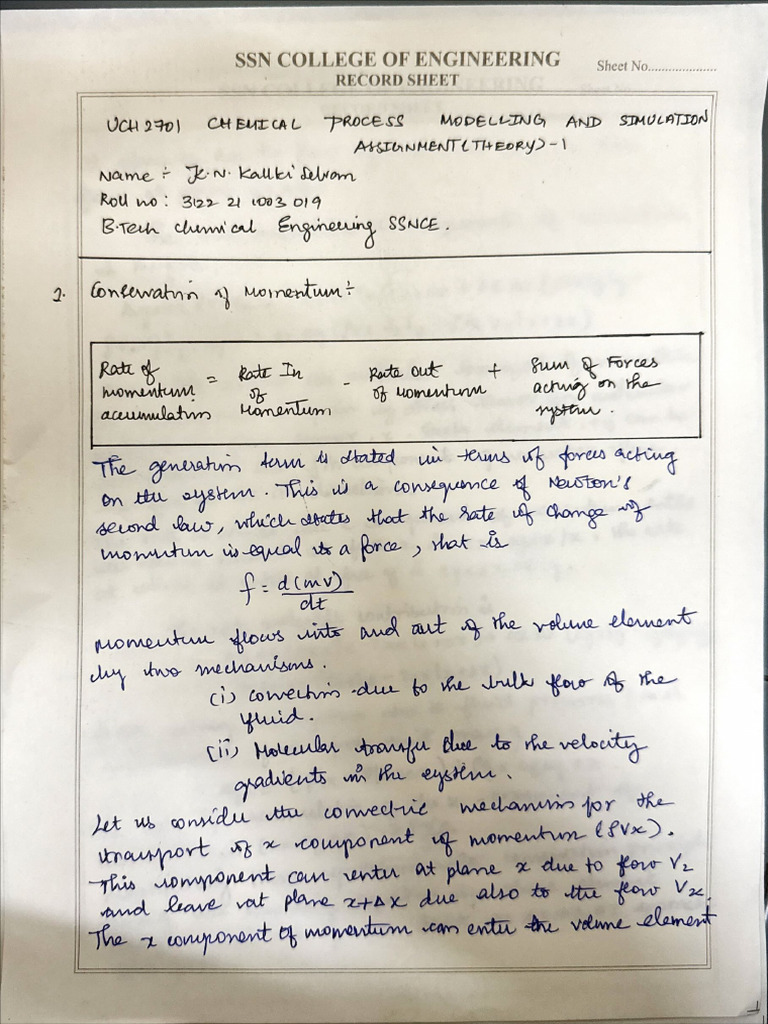 SSN COLLEGE OF ENGINEERING
RECORD SHEET
Sheet No....................
UCH2701 CHEMICAL PROCESS MODELLING AND SIMULATION
ASSIGNMENT (THEORY) - 1
Name :- K.N. Kallki Selvam
Roll no : 3122 21 1003 019
B.Tech chemical Engineering SSNCE.
2. Conservation of Momentum :-
Rate of momentum accumulation = Rate In of Momentum - Rate out of Momentum + Sum of Forces acting on the system.
The generation term is stated in terms of forces acting
on the system. This is a consequence of Newton's
second law, which states that the rate of change of
momentum is equal to a force, that is
f = d(mv)/dt
momentum flows into and out of the volume element
by two mechanisms.
(i) convection due to the bulk flow of the
fluid.
(ii) Molecular transfer due to the velocity
gradients in the system.
Let us consider the convective mechanism for the
transport of x component of momentum (ρVx).
This component can enter at plane x due to flow Vx
and leave at plane x+Δx due also to the flow Vx.
The x component of momentum can enter the volume element